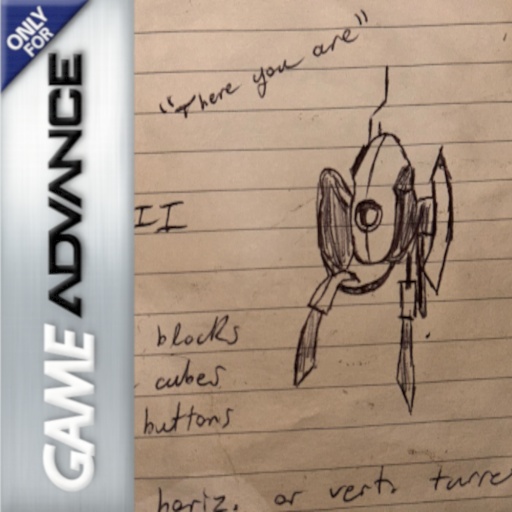 ONLY
FOR
GAME ADVANCE
"There you are"
II
blocks
cubes
buttons
horiz. or vert. turre